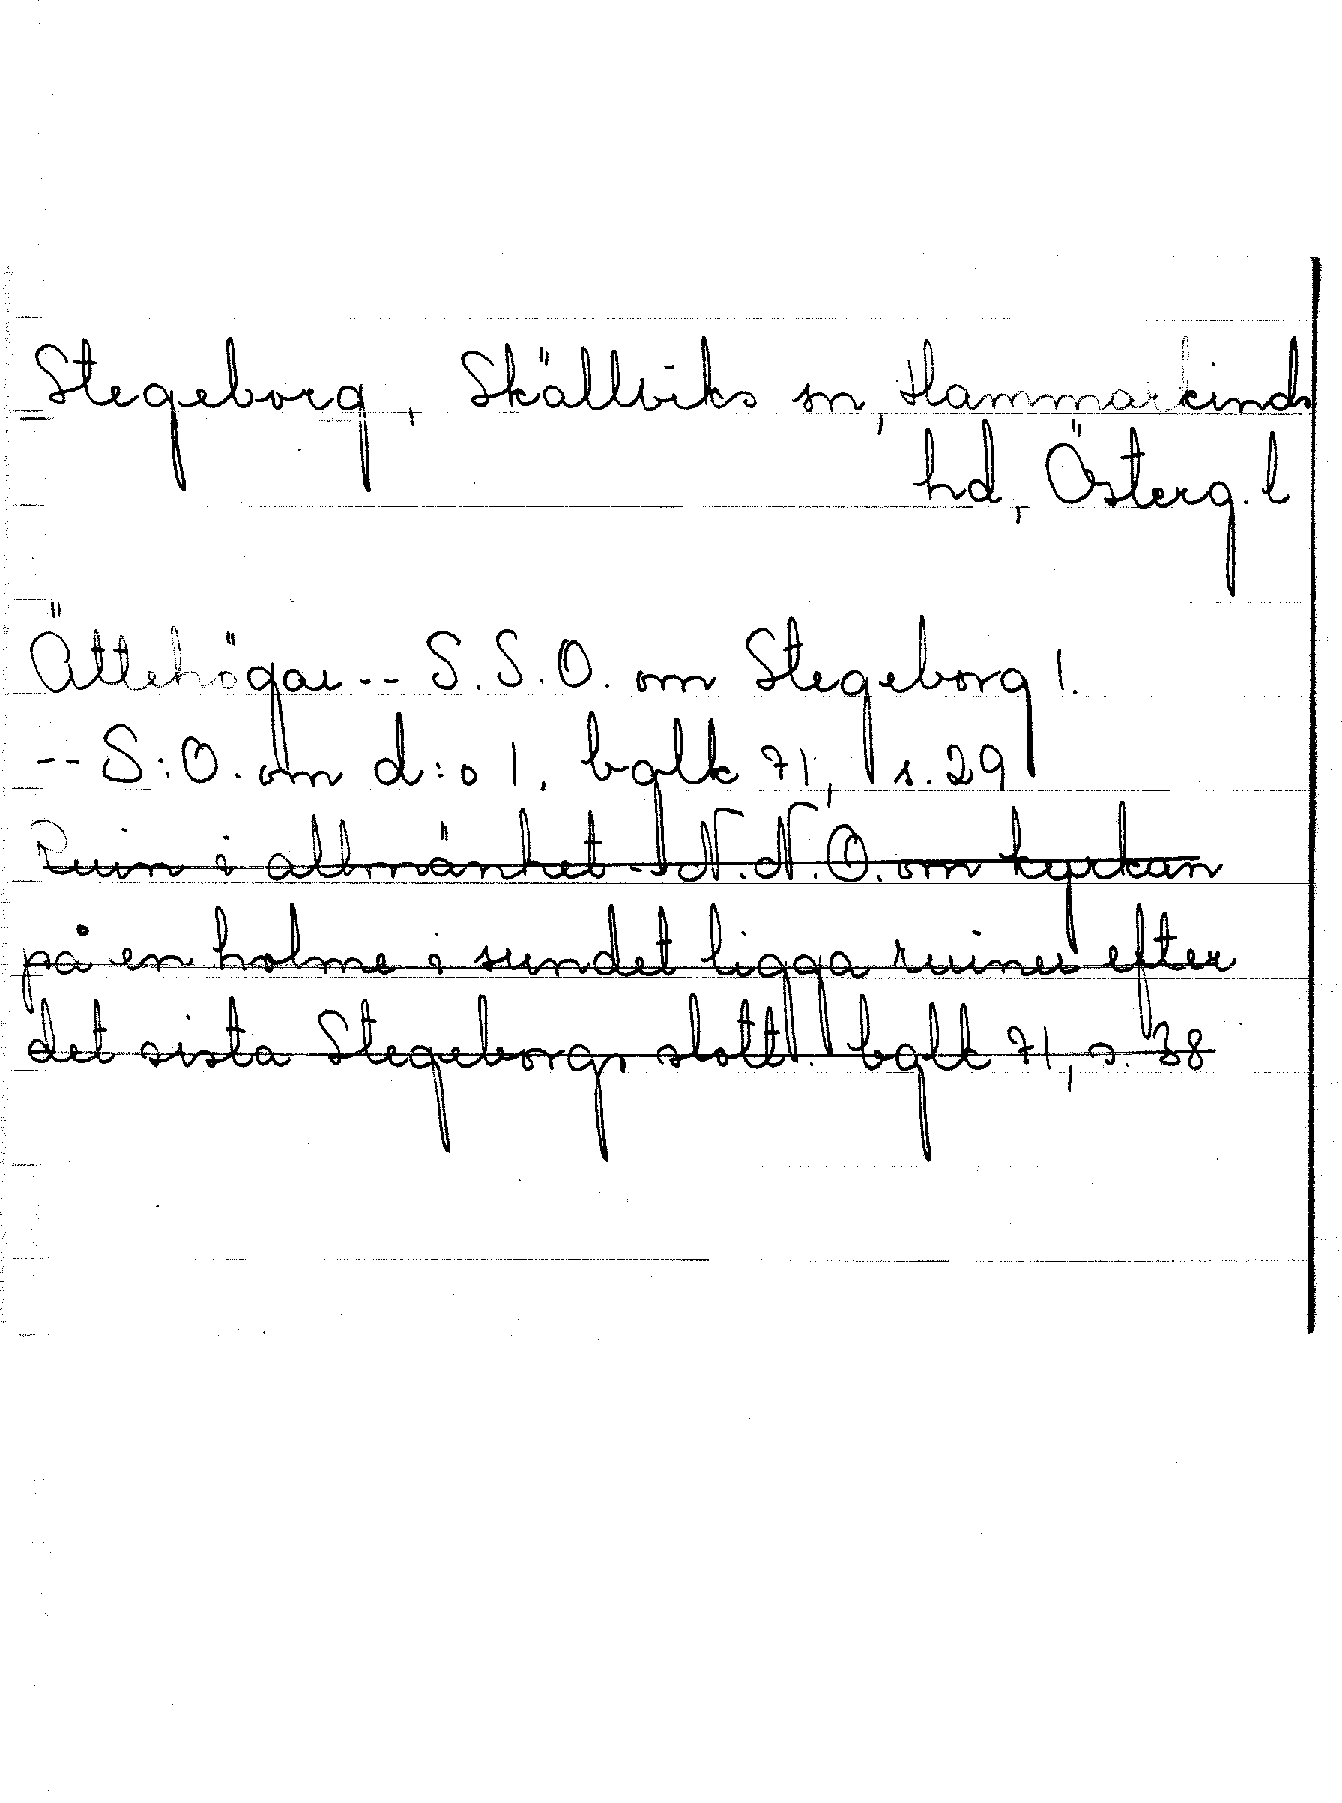 Stegeborg, Skällviks sn, Hammarkinds
hd, Österg. l
Ättehögar -- S.S.O. om Stegeborg 1.
-- S:O. om d:o 1, bglk 71, s. 29
Ruin i allmänhet -- N.N.O. om kyrkan
på en holme i sundet ligga ruiner efter
det sista Stegeborgs slott. bglk 71, s. 38